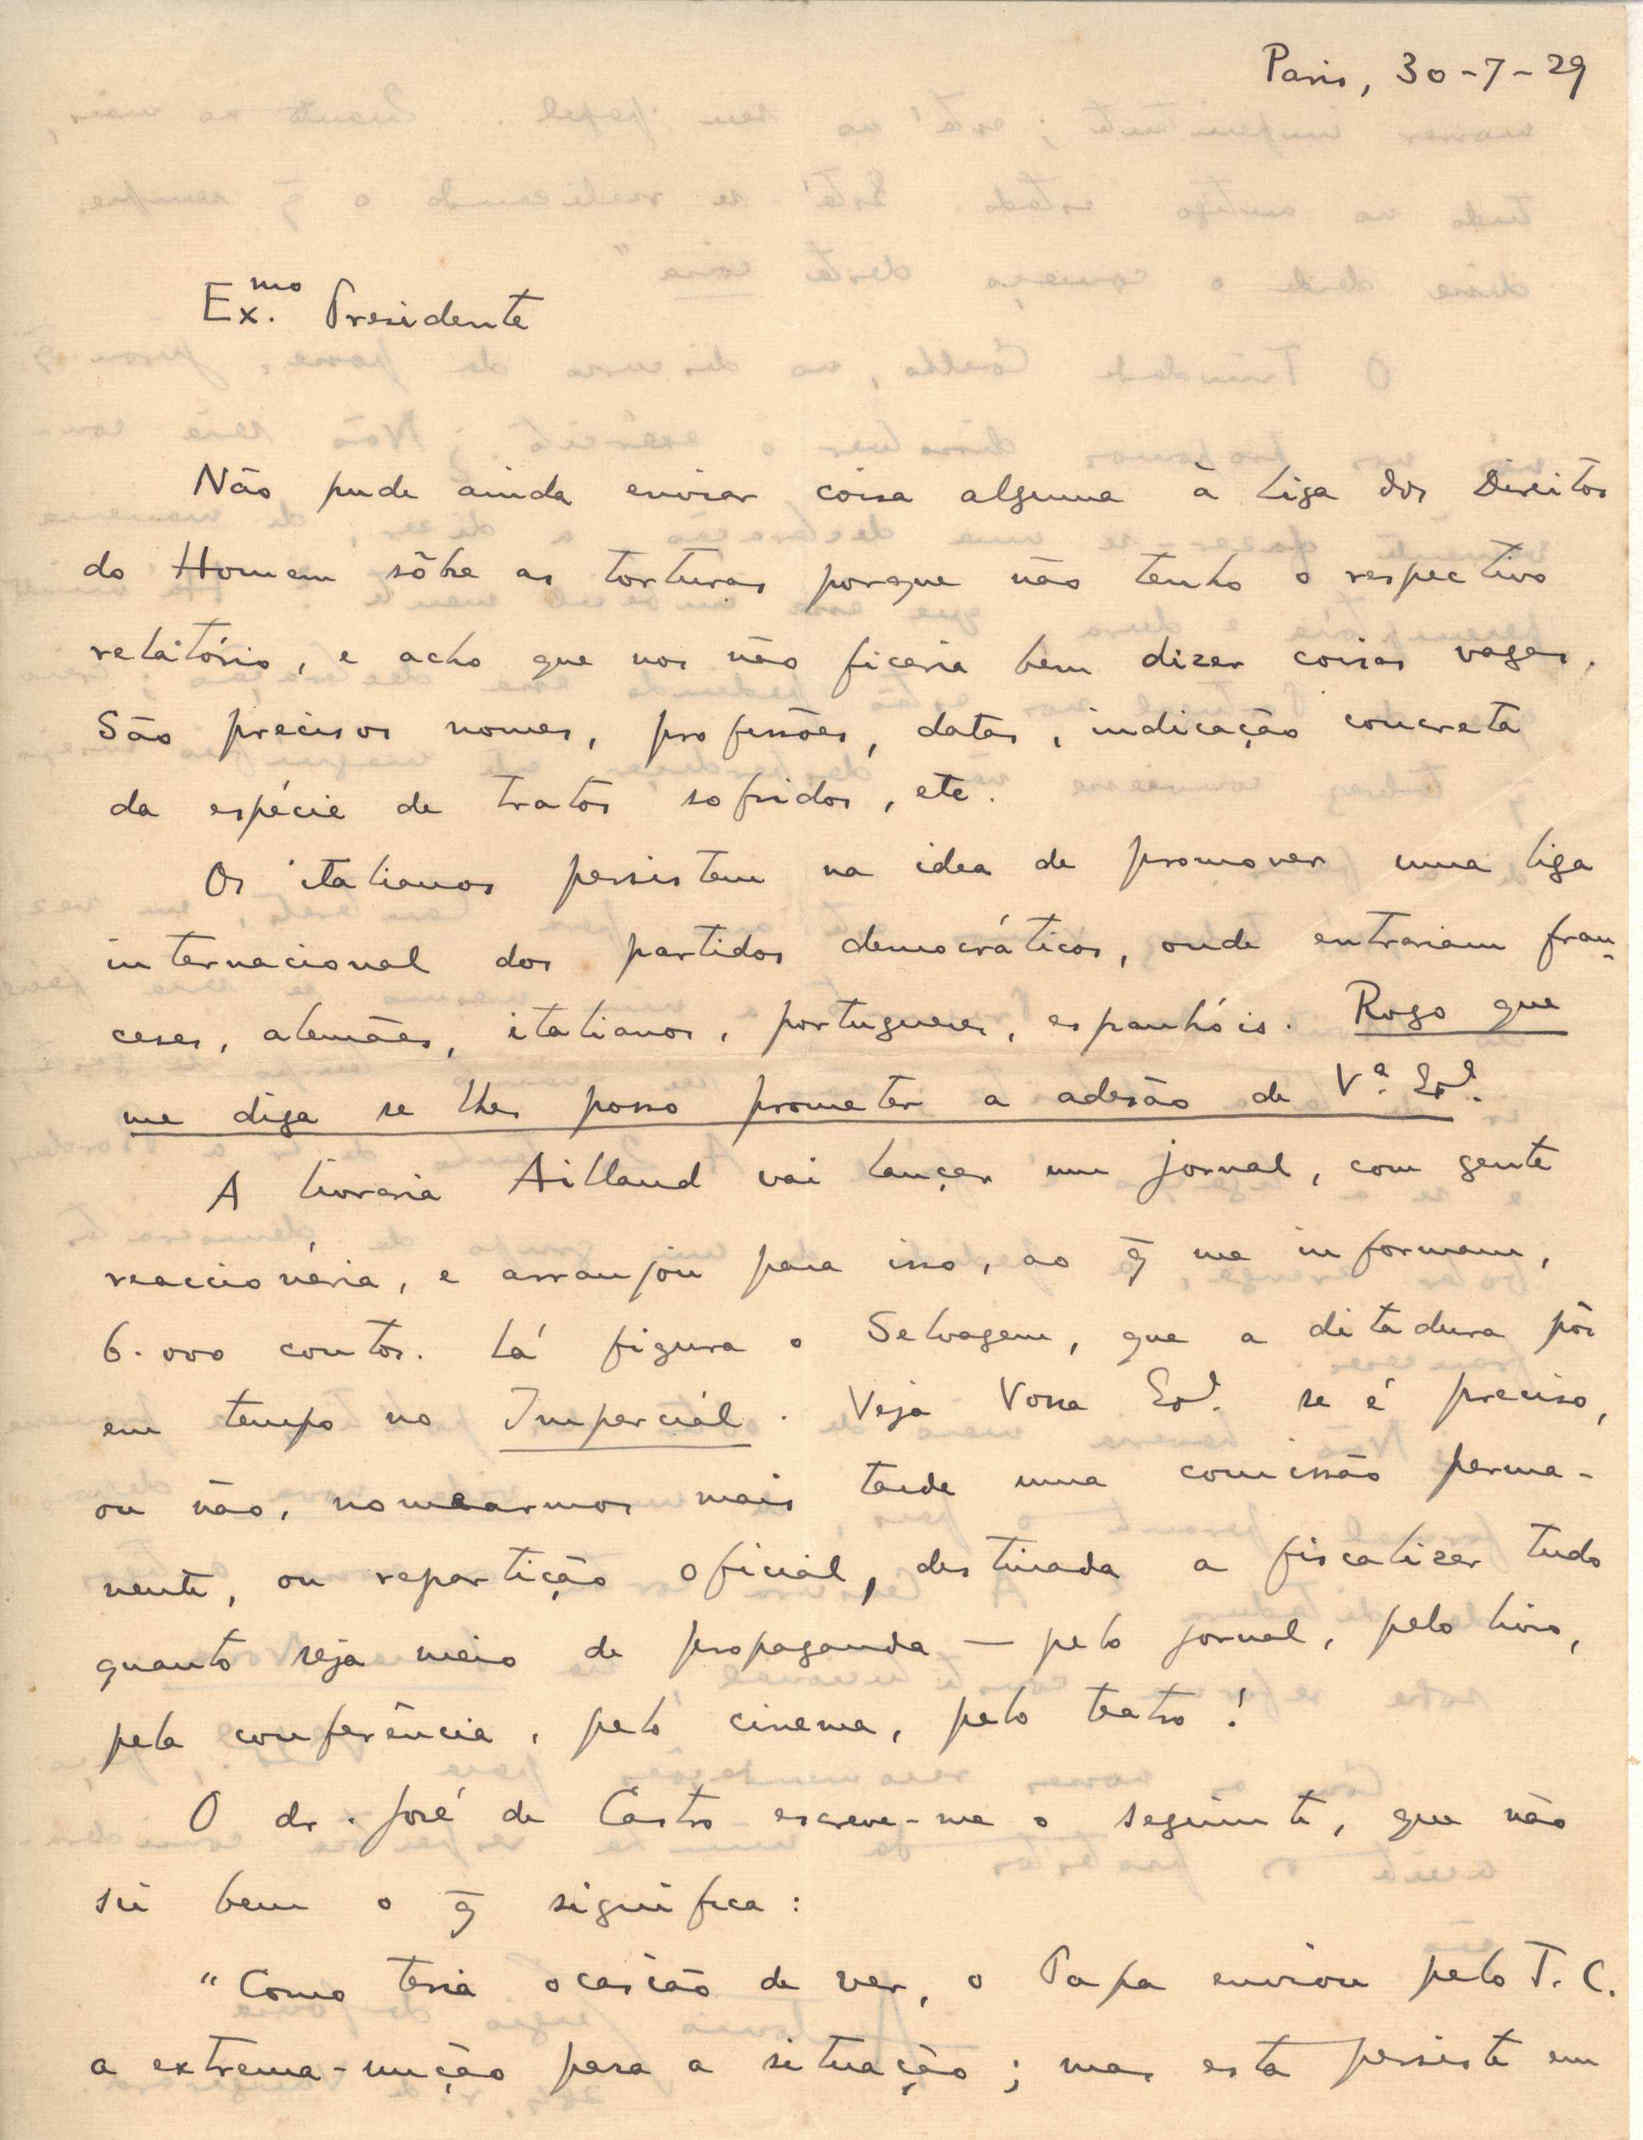 Paris, 30-7-29
Ex.mo Presidente
Não pude ainda enviar coisa alguma à Liga dos Direitos
do Homem sôbre as torturas porque não tenho o respectivo
relatório, e acho que nos não ficaria bem dizer coisas vagas.
São precisos nomes, profissões, datas, indicação concreta
da espécie de tratos sofridos, etc.
Os italianos persistem na idea de promover uma liga
internacional dos partidos democráticos, onde entrariam fran-
ceses, alemães, italianos, portugueses, espanhóis. Rogo que
me diga se lhes posso prometer a adesão de V.ª Ex.ª.
A livraria Aillaud vai lançar um jornal, com gente
reaccionária, e arranjou para isso, ao q̃ me informam,
6.000 contos. Lá figura o Selvagem, que a ditadura pôs
em tempo no Imparcial. Veja Vossa Ex.ª se é preciso,
ou não, nomearmos mais tarde uma comissão perma-
nente, ou repartição oficial, destinada a fiscalizar tudo
quanto seja meio de propaganda — pelo jornal, pelo livro,
pela conferência, pelo cinema, pelo teatro!
O dr. José de Castro escreve-me o seguinte, que não
sei bem o q̃ significa:
"Como teria ocasião de ver, o Papa enviou pelo T. C.
a extrema-unção para a situação; mas esta persiste em